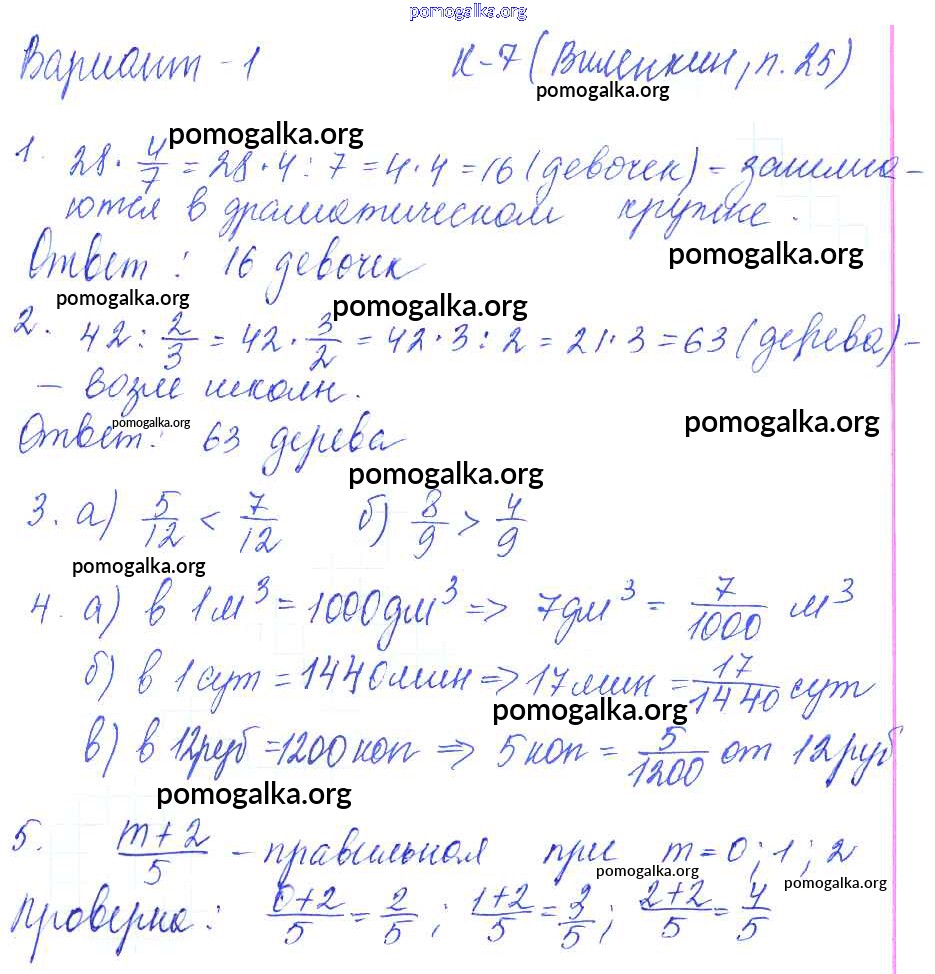 pomogalka.org
Вариант - 1 К-7 (Виленкин, п. 25)
pomogalka.org
pomogalka.org
1. 28 · 4/7 = 28 · 4 : 7 = 4 · 4 = 16 (девочек) - занима-
ются в драматическом кружке.
pomogalka.org
Ответ: 16 девочек
pomogalka.org
pomogalka.org
2. 42 : 2/3 = 42 · 3/2 = 42 · 3 : 2 = 21 · 3 = 63 (дерева) -
- возле школы.
pomogalka.org
pomogalka.org
Ответ: 63 дерева
pomogalka.org
3. а) 5/12 < 7/12 б) 8/9 > 4/9
pomogalka.org
4. а) в 1 м³ = 1000 дм³ => 7 дм³ = 7/1000 м³
б) в 1 сут = 1440 мин => 17 мин = 17/1440 сут
pomogalka.org
в) в 12 руб = 1200 коп => 5 коп = 5/1200 от 12 руб
pomogalka.org
5. m+2/5 - правильная при m = 0; 1; 2
pomogalka.org
pomogalka.org
Проверка: 0+2/5 = 2/5; 1+2/5 = 3/5; 2+2/5 = 4/5